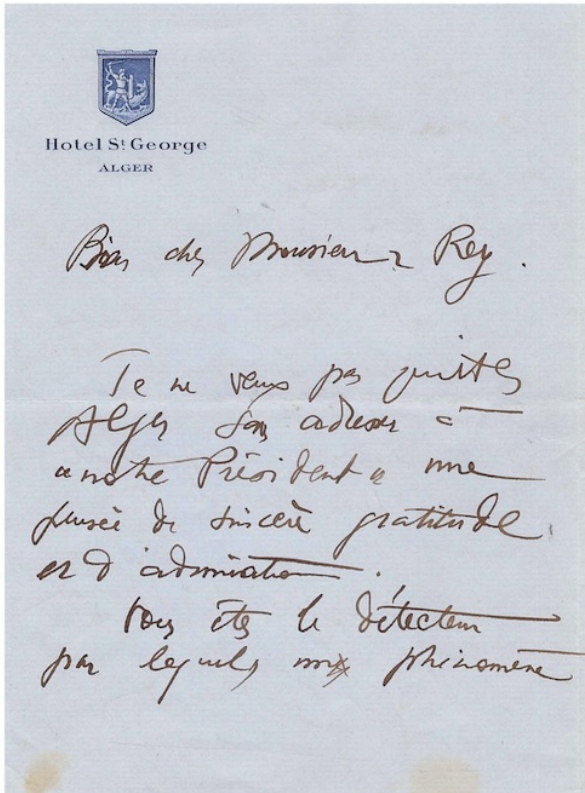 Hotel St George
ALGER
Bien cher Monsieur Rey.
Je ne veux pas quitter
Alger sans adresser à
"notre Président" une
pensée de sincère gratitude
et d'admiration.
Vous êtes le détecteur
par lequel phénomène